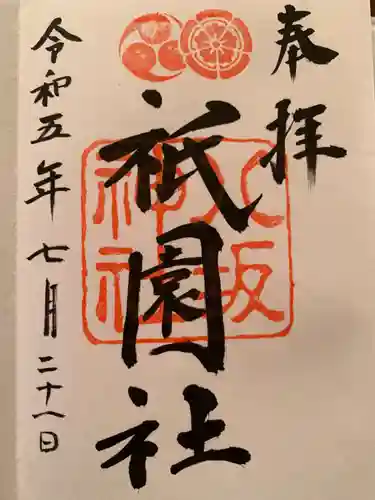 奉拝
八坂神社
祇園社
令和五年七月二十八日